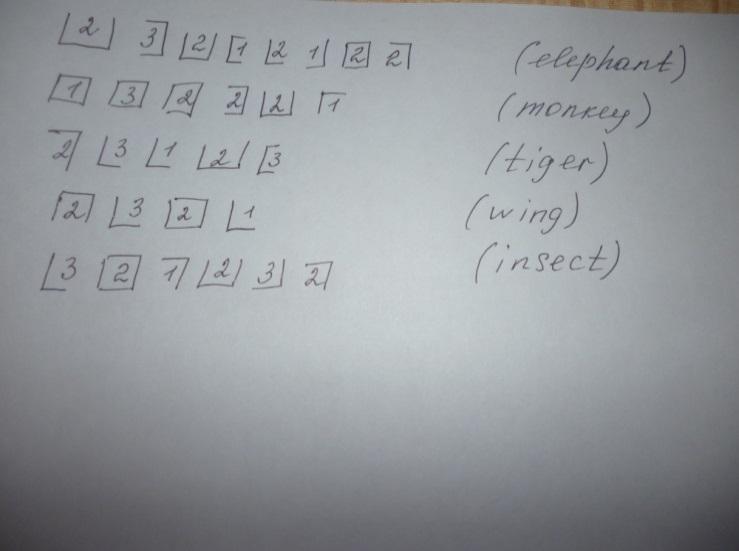 2 3 2 1 2 1 2 2 (elephant)
1 3 2 2 2 1 (monkey)
2 3 1 2 3 (tiger)
2 3 2 1 (wing)
3 2 1 2 3 2 (insect)